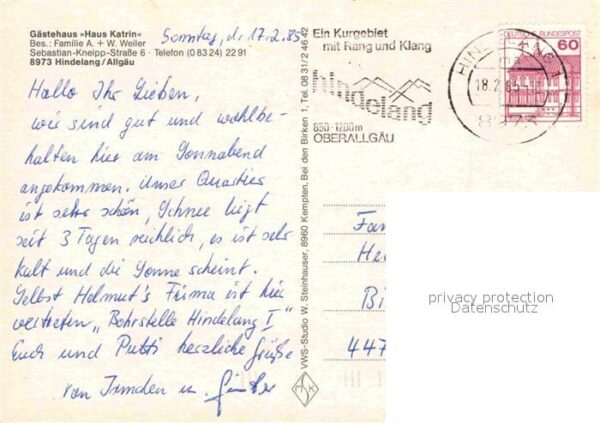 Gästehaus »Haus Katrin«
Bes.: Familie A. + W. Weiler
Sebastian-Kneipp-Straße 6 · Telefon (0 83 24) 22 91
8973 Hindelang/Allgäu
Sonntag, d. 17.2.85
Hallo Ihr Lieben,
wir sind gut und wohlbe-
halten hier am Sonnabend
angekommen. Unser Quartier
ist sehr schön, Schnee liegt
seit 3 Tagen reichlich, es ist sehr
kalt und die Sonne scheint.
Selbst Helmut's Firma ist hier
vertreten „Bohrstelle Hindelang I"
Euch und Putti herzliche Grüße
von Irmchen u. Günter
VWS-Studio W. Steinhauser, 8960 Kempten, Bei den Birken 1, Tel. 08 31/2 46 42
HSK
Ein Kurgebiet
mit Rang und Klang
hindelang
850-1200m
OBERALLGÄU
HINDELANG 1
18.2.85
8973
DEUTSCHE BUNDESPOST
60
Fam
He
Bi
447
privacy protection
Datenschutz